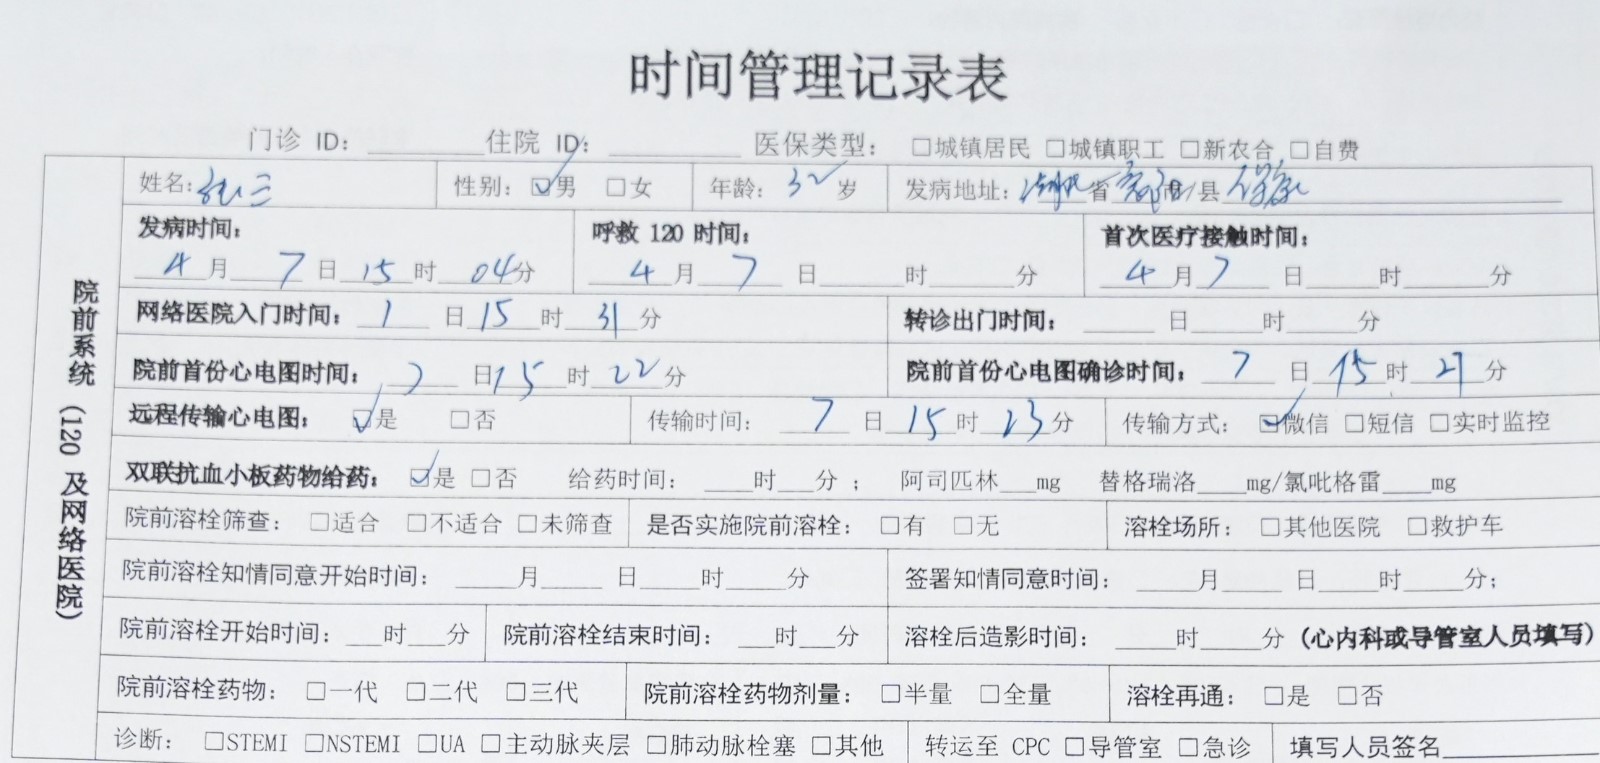 时间管理记录表
门诊 ID: ________ 住院 ID: ________ 医保类型: □城镇居民 □城镇职工 □新农合 □自费
院前系统（120 及网络医院）
姓名: 张三 性别: ☑男 □女 年龄: 32 岁 发病地址: 湖北 省 襄阳 市/县 保康
发病时间: 呼救 120 时间: 首次医疗接触时间:
4 月 7 日 15 时 04 分 4 月 7 日 ____ 时 ____ 分 4 月 7 日 ____ 时 ____ 分
网络医院入门时间: 日 15 时 31 分 转诊出门时间: ____ 日 ____ 时 ____ 分
院前首份心电图时间: 7 日 15 时 22 分 院前首份心电图确诊时间: 7 日 15 时 分
远程传输心电图: ☑是 □否 传输时间: 7 日 15 时 23 分 传输方式: ☑微信 □短信 □实时监控
双联抗血小板药物给药: ☑是 □否 给药时间: ____时___分 ; 阿司匹林___mg 替格瑞洛____mg/氯吡格雷____mg
院前溶栓筛查: □适合 □不适合 □未筛查 是否实施院前溶栓: □有 □无 溶栓场所: □其他医院 □救护车
院前溶栓知情同意开始时间: ____月____ 日____时____分 签署知情同意时间: ____月____ 日____时____分;
院前溶栓开始时间: ___时___分 院前溶栓结束时间: ___时___分 溶栓后造影时间: ____时____分 (心内科或导管室人员填写)
院前溶栓药物: □一代 □二代 □三代 院前溶栓药物剂量: □半量 □全量 溶栓再通: □是 □否
诊断: □STEMI □NSTEMI □UA □主动脉夹层 □肺动脉栓塞 □其他 转运至 CPC □导管室 □急诊 填写人员签名________